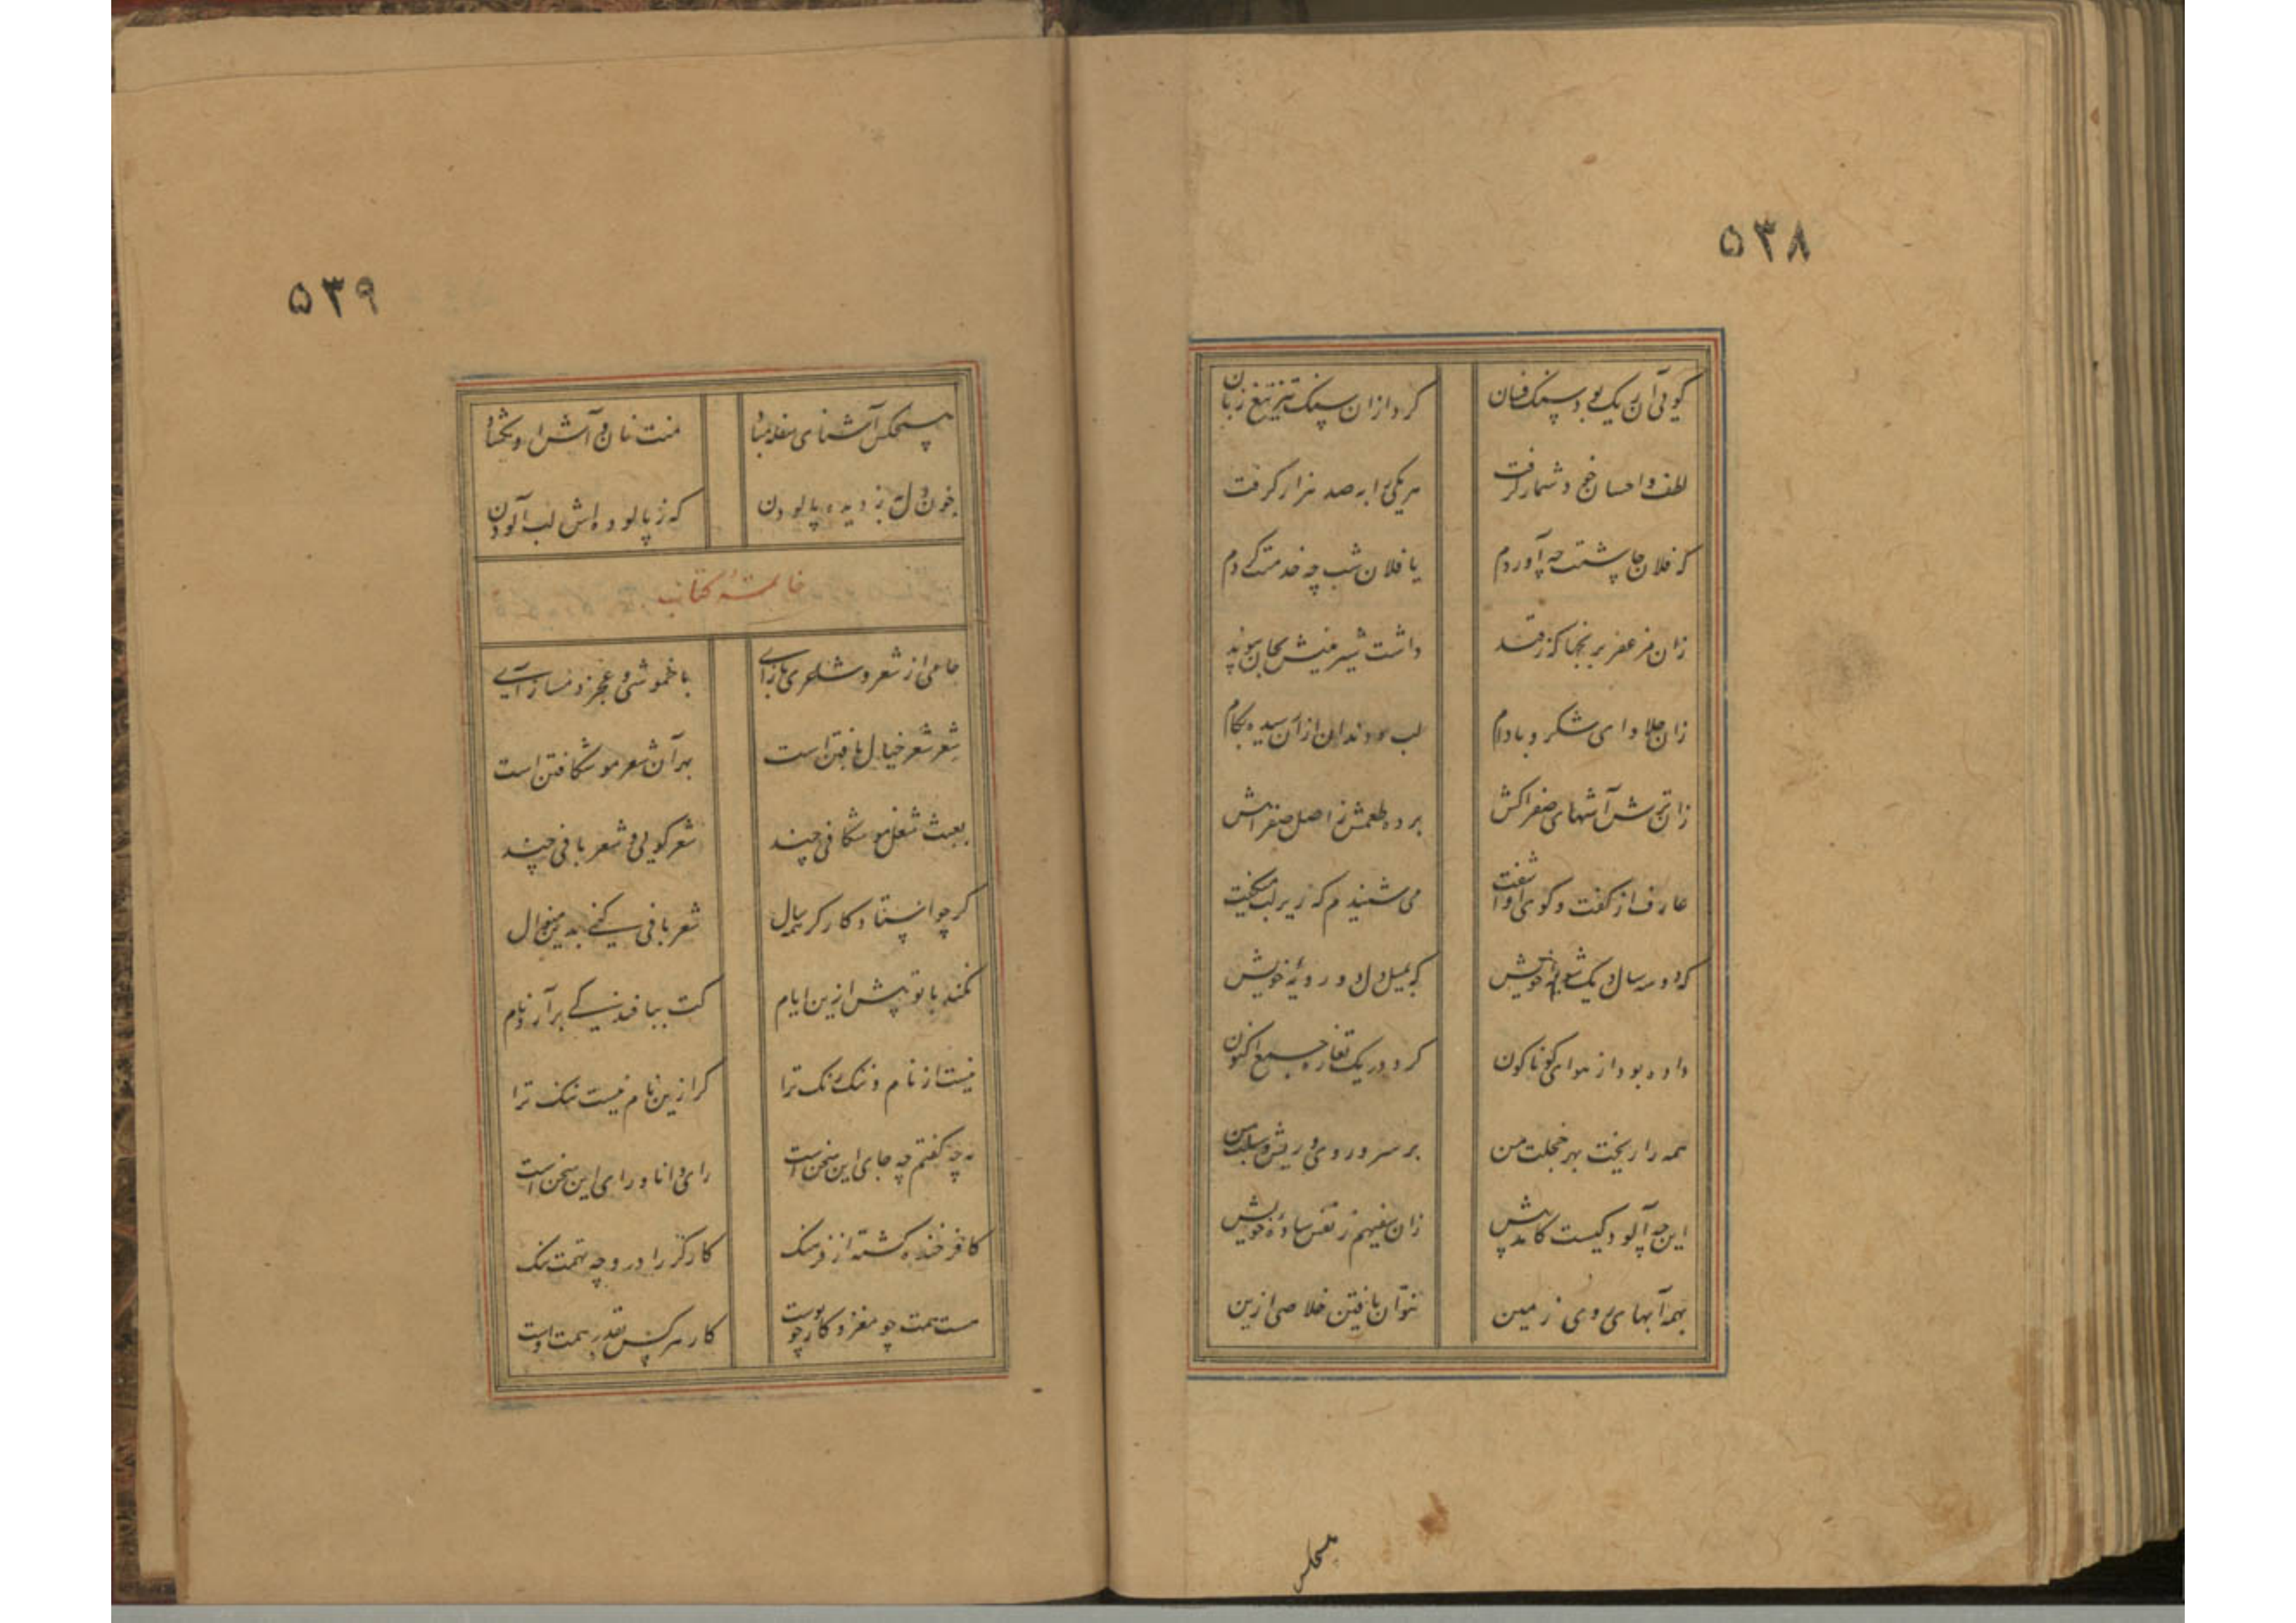 ۵۳۸
گویی آن ریک بود سنک فسان
کرد ازان سنک تیز تیغ زبان
لطف و احسان خود شمار گرفت
هر یکی را به صد هزار گرفت
کز فلان چاشتت چه آوردم
یا فلان شب چه خدمتت کردم
زان مزعفر برنجها کز قند
داشت شیرینیش بجان پیوند
زان حلاوای شکر و بادام
لب و دندان از آن رسیده بکام
زان ترش آشهای صفراکش
برده طعمش ز اصل صفرا غش
عارف از گفت و گوی او آشفت
می شنیدم که زیر لب میگفت
که دو سه سال و یک شوربه خویش
که بمیل دل و رویه خویش
داده بود از هوای گوناگون
کرد در یک تغاره جمع اکنون
همه را ریخت بهر خجلت من
بر سر و روی و ریش و سبلت من
این چه آلودگیست کامد پیش
زان سفیهم ز نفس ساده خویش
بهمه آبهای روی زمین
نتوان یافتن خلاصی ازین
هیچکس
۵۳۹
هیچکس آشنای سفله مباد
منت نان و آشش او بگشاد
خون دل به ز دیده پالودن
که ز پالوده اش لب آلودن
خاتمه کتاب
جامی از شعر و شاعری باز آی
با خموشی و عجز دمساز آی
شعر شعر خیال بافتن است
بهر آن شعر مو شکافتن است
بعبث شغل مو شکافی چند
شعر گویی و شعر بافی چند
گر چو استاد کارگر همه سال
شعر بافی کنی بدین منوال
نکند با تو بیش ازین ایام
کت ببافندگی برآرد نام
نیست از نام و ننک رنک ترا
گر ازین نام نیست ننک ترا
نه چه گفتم چه جای این سخن است
رای دانا ورای این سخن است
کافر خنده گشته از فرهنک
کارگر را درو چه تهمت ننک
هست همت چو مغز و کار چو پوست
کار هر کس بقدر همت اوست